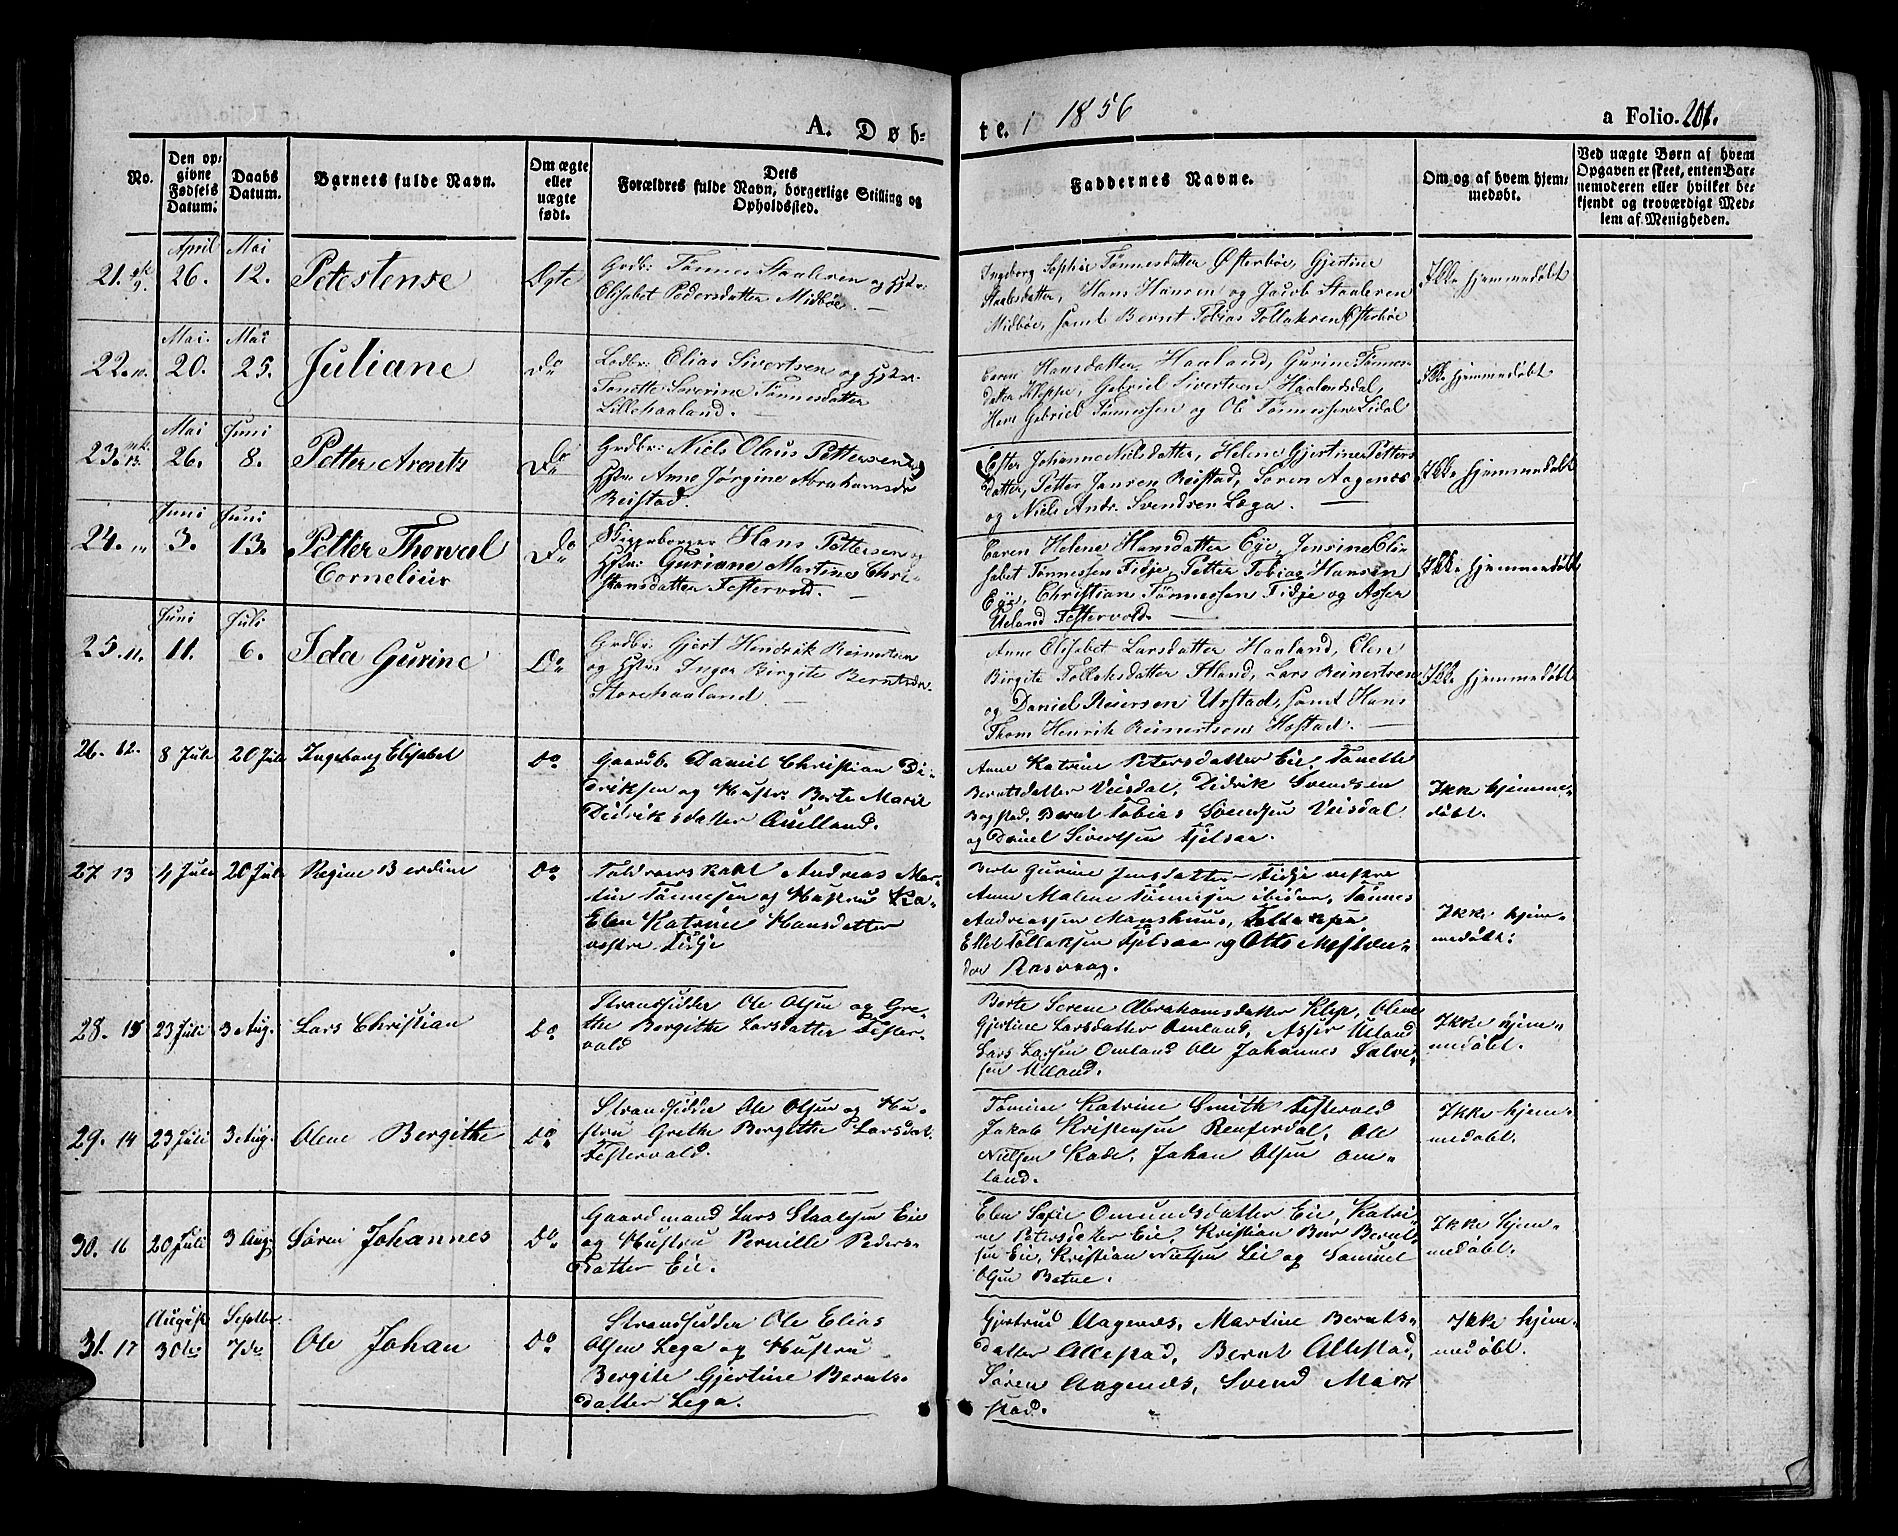 A. Døb-
te. i 1856
a Folio. 201.
No.
Den op-
givne
Fødsels
Datum.
Daabs
Datum.
Barnets fulde Navn.
Om ægte
eller
uægte
født.
Dets
Forældres fulde Navn, borgerlige Stilling og
Opholdssted.
Faddernes Navne.
Om og af hvem hjem-
medøbt.
Ved uægte Børn af hvem
Opgaven er skeet, enten Bar-
nemoderen eller hvilket be-
kjendt og troværdigt Med-
lem af Menigheden.
April Mai
21. 9. 26. 12. Petestense Ægte
Grdbr: Tønnes Staalesen og Hstr:
Elisabet Pedersdatter Midbøe. —
Ingeborg Sophie Tønnesdatter Østerbøe, Gjertine
Staalesdatter, Hans Hansen og Jacob Staalesen
Midbøe, samt Bernt Tobias Tollaksen Østerbøe
Ikke hjemmedøbt
Mai. Mai
22. 10. 20. 25. Juliane Do
Ledbr: Elias Sivertsen og Hstr:
Tonette Severine Tønnesdatter
Lillehaaland. —
Caren Hansdatter Haaland, Gurine Tønnes-
datter Kleppe, Gabriel Sivertsen Haalandsdal,
Hans Gabriel Tønnessen og Ole Tønnessen Lidal
Ikke hjemmedøbt
Mai Juni
23. 13. 26. 8. Petter Arentz Do
Grdbr: Niels Olaus Pettersen og
Hstr: Anne Jørgine Abrahamsdr
Reistad.
Ester Johanne Nilsdatter, Helene Gjertine Petters
datter, Petter Jansen Reistad, Søren Aagenæs
og Niels Andr. Svendsen Læga. —
Ikke hjemmedøbt
Juni Juni
24. 3. 13. Petter Thorval
Cornelius Do
Hans Pettersen og
Hstr: Guriane Martine Chri-
stensdatter Festervold. —
Caren Helene Hansdatter Eye, Jensine Eli-
sabet Tønnessen Fidje, Petter Tobias Hansen
Eye, Christian Tønnessen Fidje og Asser
Ueland Festervold. —
Ikke hjemmedøbt
Juni Juli
25. 11. 11. 6. Ida Gurine Do
Grdbr: Gjert Hendrik Reinertsen
og Hstr: Inger Birgite Berntsdr
Storehaaland. —
Anne Elisabet Larsdatter Haaland, Elen
Birgite Tollaksdatter Fland, Lars Reinertsen
og Daniel Reiersen Urstad, samt Hans
Thom Henrik Reinertsen Hostad. —
Ikke hjemmedøbt
26. 12. 8 Juli 20 Juli Ingeborg Elisabet Do
Gaardb. Daniel Christian Di-
driksen og Hustr. Berte Marie
Didriksdatter Qvilland.
Anne Katrine Petersdatter Eie, Tonette
Berntsdatter Veisdal, Didrik Svendsen
Bogstad, Bernt Tobias Svendsen Veisdal
og Daniel Sivertsen Fjelsaa.
Ikke hjemme-
døbt.
27. 13 4 Juli 20 Juli Regine Berdine Do
Andreas Mar-
tin Tønnesen og Hustru Ka-
Elen Katrine Hansdatter
vestre Fidje
Berte Gurine Jensdatter Fidje vestre
Anne Malene Tønnesen ibidem, Tønnes
Andreassen Monshuus,
Ellef Tollaksen Fjelsaa og Otto
der Rasvaag.
Ikke hjem-
medøbt:
28. 15 23 Juli 3 Aug. Lars Christian Do
Strandsidder Ole Olsen og Gre-
the Bergithe Larsdatter Fester-
vald
Berte Serene Abrahamsdatter Klep, Olene
Gjertine Larsdatter Omland, Asser Uland
Lars Larsen Omland Ole Johannes Salve-
sen Uland.
Ikke hjem-
medøbt.
29. 14 23 Juli 3 Aug. Olene Bergithe Do
Strandsidder Ole Olsen og Hu-
stru Grethe Bergithe Larsdat.
Festervald.
Tomine Katrine Smith Festervald
Jakob Kristensen Rensferdal, Ole
Nielsen Kade, Johan Olsen Om-
land.
Ikke hjem-
medøbt.
30. 16 20 Juli 3 Aug. Søren Johannes Do
Gaardmand Lars Staalesen Eie
og Hustru Pernille Peders-
Datter Eie.
Elen Sofie Omundsdatter Eie, Katri-
ne Petersdatter Eie, Kristian Bernt-
sen Eie, Kristian Nielsen Eie og Samuel
Olsen Betne.
Ikke hjem-
medøbt.
August Septbr.
31. 17 30te 7de Ole Johan Do
Strandsidder Ole Elias
Olsen Lega og Hustru
Bergite Gjertine Bernts-
datter Lega.
Gjertrud Aagenæs, Martine Bernts-
datter Allestad, Bernt Allestad,
Søren Aagenæs, Svend
stad.
Ikke hjem-
medøbt.